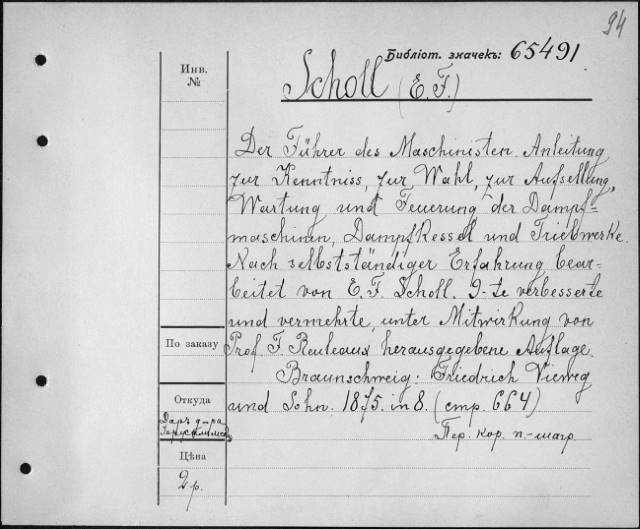 94
Библіот. значекъ: 65491
Инв.
№
Scholl (E. F.)
Der Führer des Maschinisten. Anleitung
zur Kenntniss, zur Wahl, zur Aufsellung,
Wartung und Feuerung der Dampf=
maschinen, Dampfkessel und Triebwerke.
Nach selbstständiger Erfahrung bear-
beitet von E. F. Scholl. 9-te verbesserte
und vermehrte, unter Mitwirkung von
По заказу
Prof. F. Reuleaux herausgegebene Auflage.
Braunschweig: Friedrich Vieweg
Откуда
und Sohn. 1875. in 8. (стр. 664)
Даръ д-ра
Пер. кор. п.-шагр.
Цѣна
2 р.